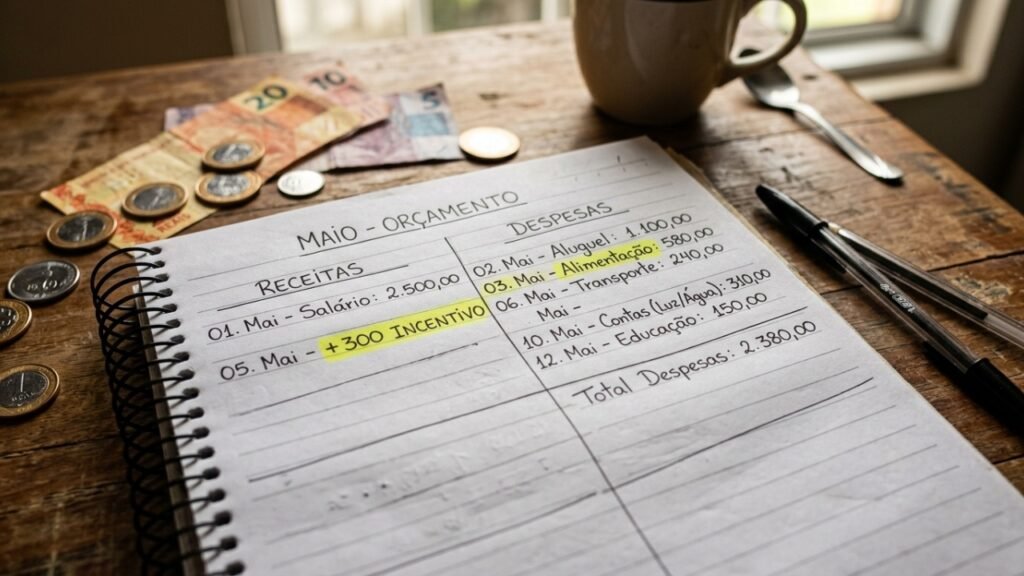 20
10
5
MAIO - ORÇAMENTO
RECEITAS
01. Mai - Salário: 2.500,00
05. Mai - +300 INCENTIVO
DESPESAS
02. Mai - Aluguel: 1.100,00
03. Mai - Alimentação: 580,00
06. Mai - Transporte: 240,00
Mai -
10. Mai - Contas (Luz/Água): 310,00
12. Mai - Educação: 150,00
Total Despesas: 2.380,00